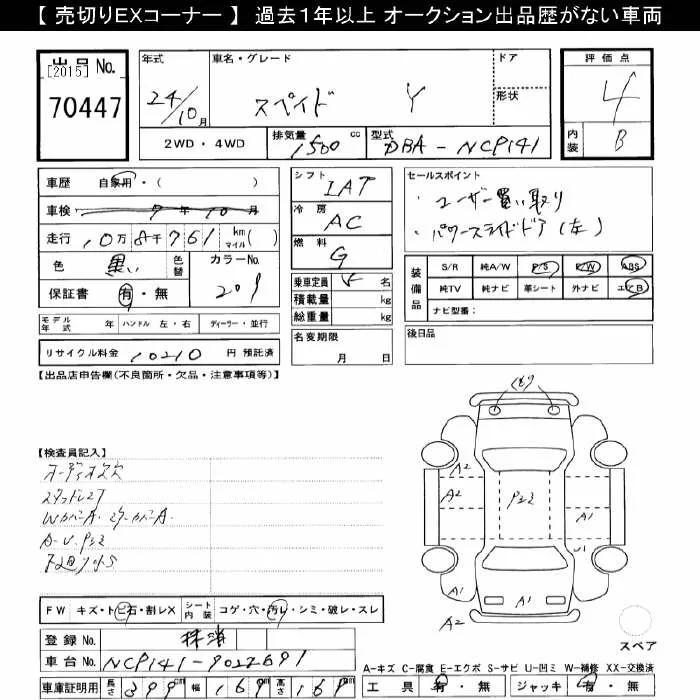 【 売切りEXコーナー 】 過去1年以上 オークション出品歴がない車両
出品 No.
[2015]
70447
年式
24/10月
車名・グレード
スペイド Y
ドア
形状
評価点
4
内装
B
2WD・4WD
排気量
1500 cc
型式
DBA-NCP141
車歴 自家用・( )
車検 7年 10月
走行 10万 8千 761 km マイル ( )
色 黒い 色替 カラーNo. 209
保証書 有・無
シフト IAT
冷房 AC
燃料 G
乗車定員 5 名
積載量 kg
総重量 kg
セールスポイント
・ユーザー買い取り
・パワースライドドア(左)
装備品
S/R 純A/W P/S P/W ABS
純TV 純ナビ 革シート 外ナビ エアB
ナビ型番:
モデル年式 年 ハンドル 左・右 ディーラー・並行
リサイクル料金 10210 円 預託済
名変期限
月 日
後日品
【出品店申告欄(不良箇所・欠品・注意事項等)】
【検査員記入】
オーディオ欠
スタッドレス
WカバーA. ミラーカバーA.
A-U. Pシミ
下廻りサS
FW キズ・トビ石・割レX シート内装 コゲ・穴・汚レ・シミ・破レ・スレ
登録 No. 抹消
車台 No. NCP141-9022691
車庫証明用 長さ 399 cm 幅 169 cm 高さ 169 cm
クモリ
A2
A2
Pシミ
A1
U1
A1
A1
A2
スペア
A-キズ C-腐食 E-エクボ S-サビ U-凹ミ W-補修 XX-交換済
工具 有・無 ジャッキ 有・無